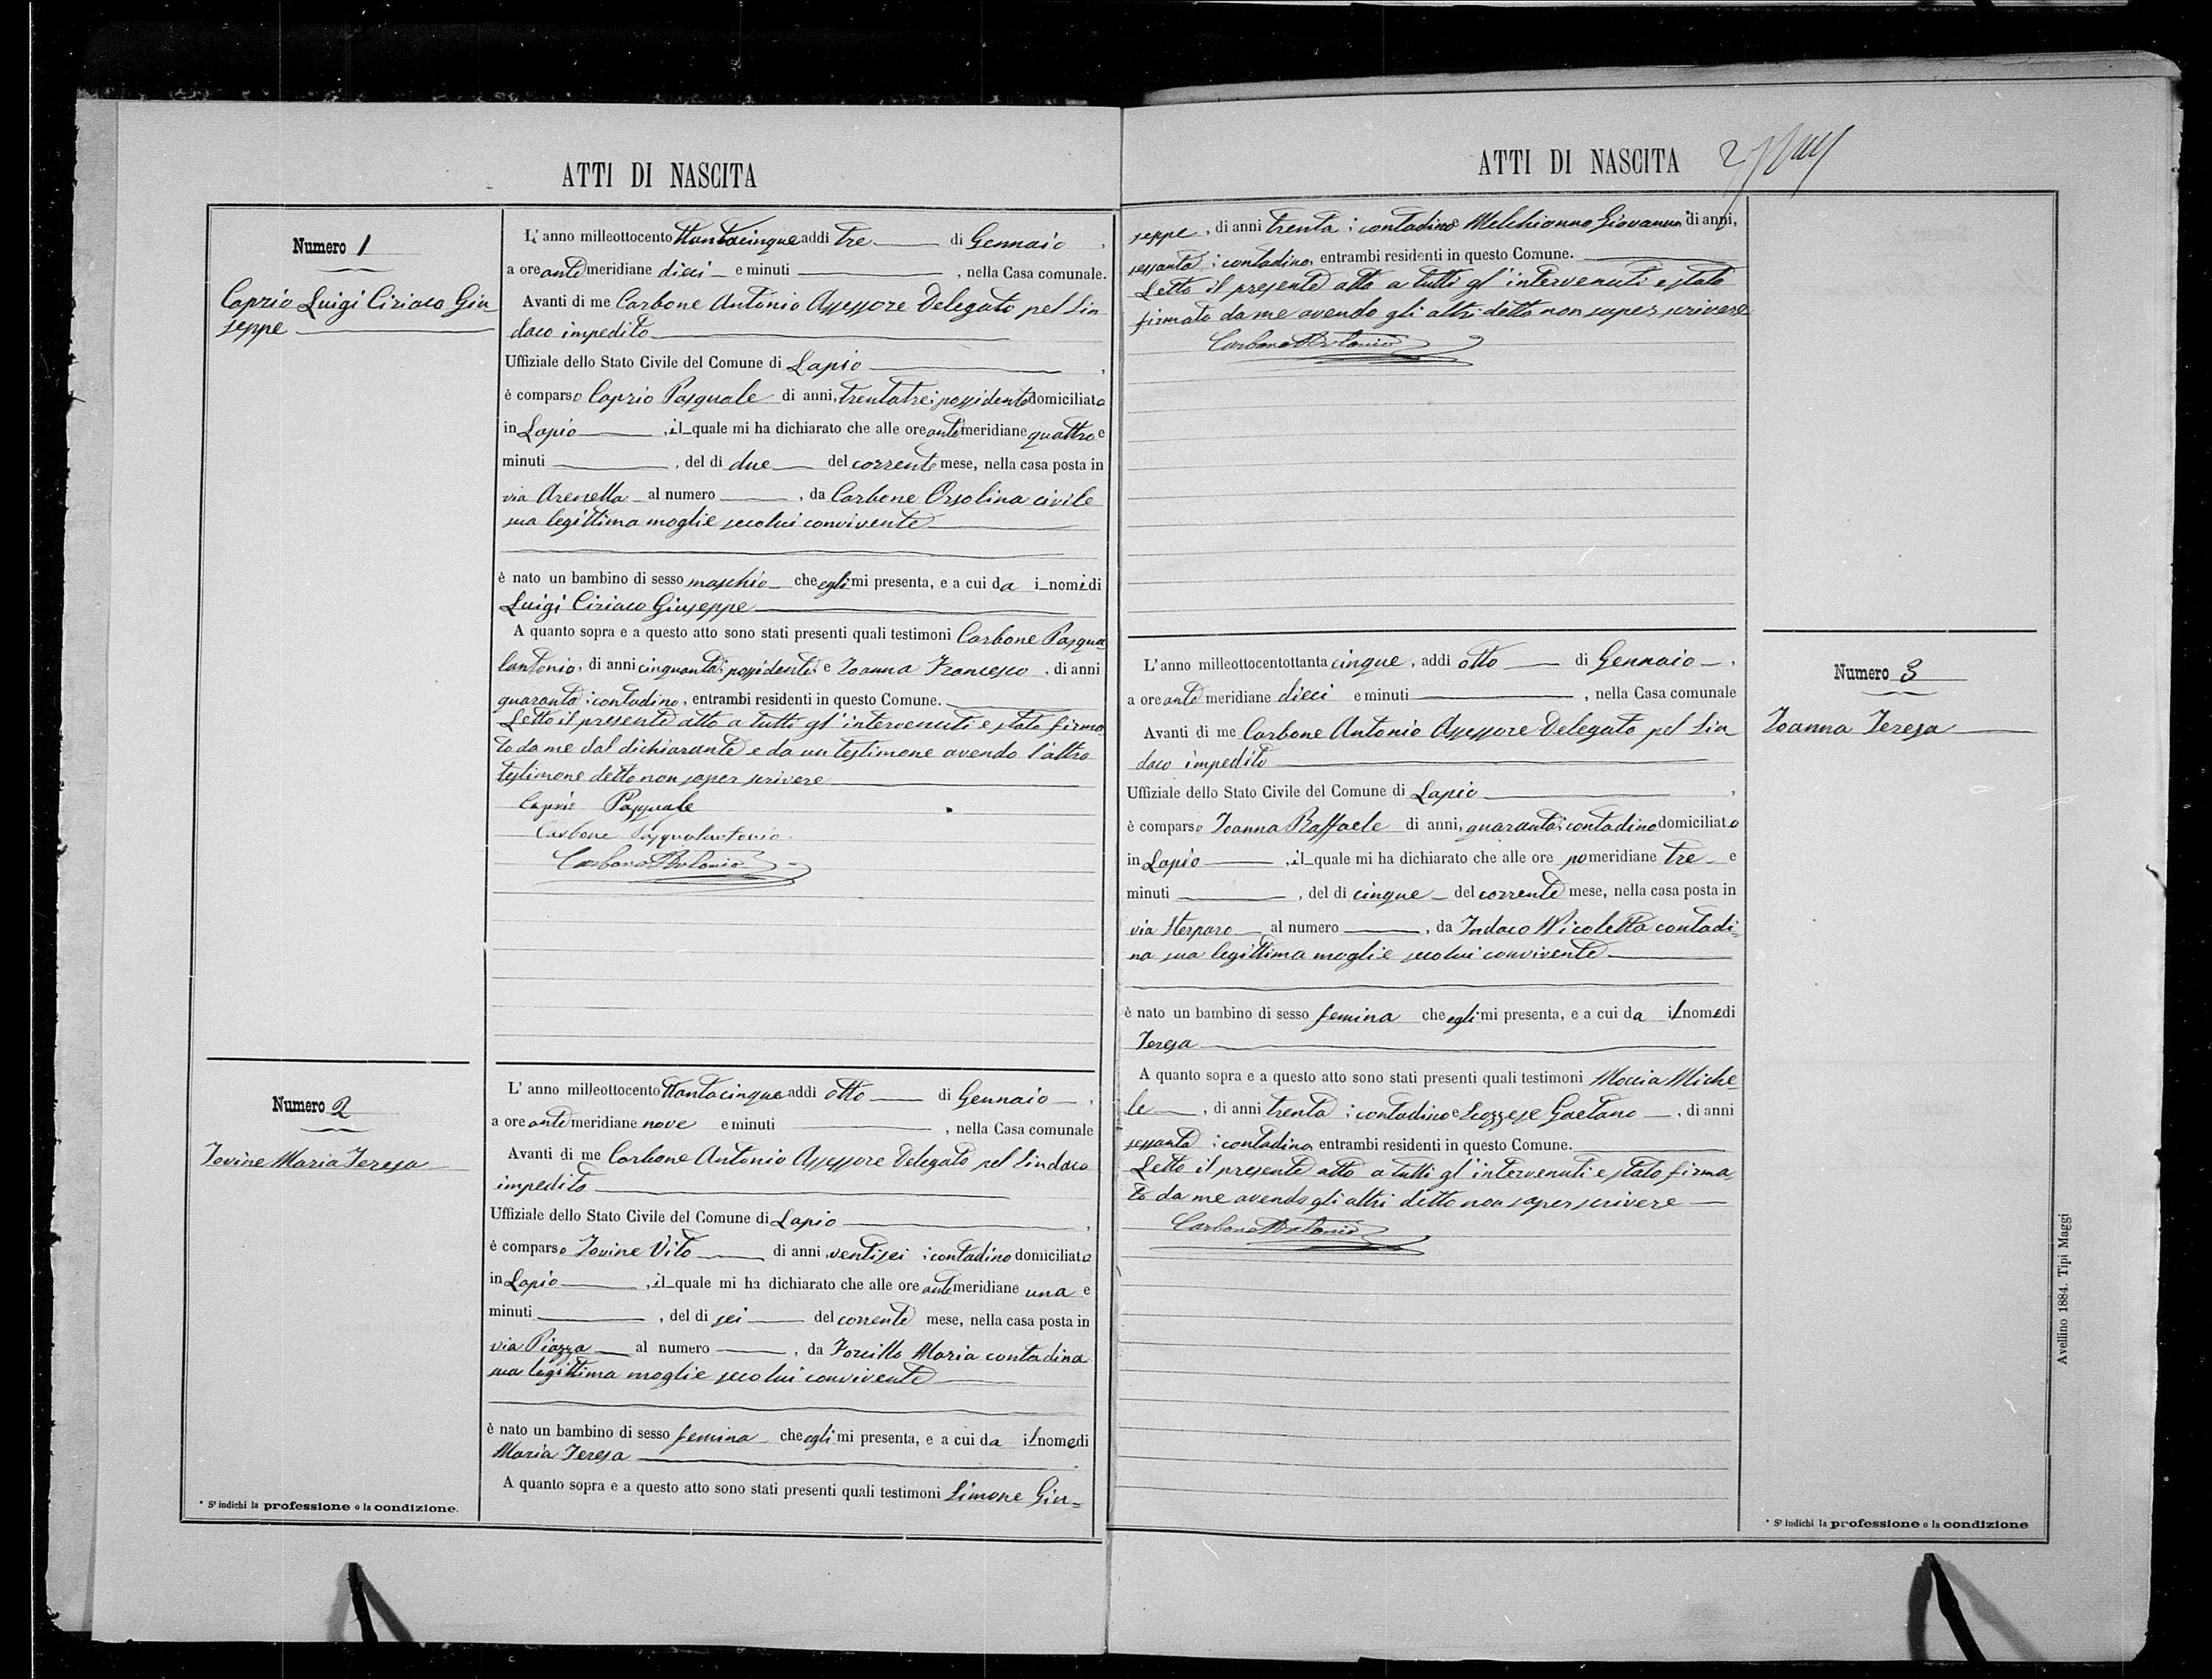 ATTI DI NASCITA
Numero 1
Caprio Luigi Ciriaco Giu
seppe
L' anno milleottocento ttantacinque addi tre di Gennaio,
a ore antimeridiane dieci e minuti , nella Casa comunale.
Avanti di me Carbone Antonio Assessore Delegato pel Sin
daco impedito
Uffiziale dello Stato Civile del Comune di Lapio,
è comparso Caprio Pasquale di anni, trentatre; possidente domiciliato
in Lapio, il quale mi ha dichiarato che alle ore antimeridiane quattro e
minuti , del di due del corrente mese, nella casa posta in
via Arenella al numero , da Carbone Orsolina civile
sua legittima moglie secolui convivente
è nato un bambino di sesso maschio che egli mi presenta, e a cui da i nomi di
Luigi Ciriaco Giuseppe
A quanto sopra e a questo atto sono stati presenti quali testimoni Carbone Pasqua
lantonio, di anni cinquanta; possidente e Ioanna Francesco, di anni
quaranta; contadino, entrambi residenti in questo Comune.
Letto il presente atto a tutti gl'intervenuti e stato firma
to da me dal dichiarante e da un testimone avendo l'altro
testimone detto non saper scrivere
Caprio Pasquale
Carbone Pasqualantonio
Carbone Antonio
Numero 2
Iovine Maria Teresa
L' anno milleottocento ttantacinque addi otto di Gennaio,
a ore antimeridiane nove e minuti , nella Casa comunale
Avanti di me Carbone Antonio Assessore Delegato pel Sindaco
impedito
Uffiziale dello Stato Civile del Comune di Lapio,
è comparso Iovine Vito di anni, ventisei; contadino domiciliato
in Lapio, il quale mi ha dichiarato che alle ore antimeridiane una e
minuti , del di sei del corrente mese, nella casa posta in
via Piazza al numero , da Forcillo Maria contadina
sua legittima moglie secolui convivente
è nato un bambino di sesso femina che egli mi presenta, e a cui da il nome di
Maria Teresa
A quanto sopra e a questo atto sono stati presenti quali testimoni Simone Giu=
* S' indichi la professione o la condizione.
ATTI DI NASCITA 2
seppe, di anni trenta; contadino e Melchionno Giovanni di anni,
sessanta; contadino, entrambi residenti in questo Comune.
Letto il presente atto a tutti gl'intervenuti e stato
firmato da me avendo gli altri detto non saper scrivere
Carbone Antonio
Numero 3
Ioanna Teresa
L' anno milleottocentottanta cinque, addi otto di Gennaio,
a ore antimeridiane dieci e minuti , nella Casa comunale
Avanti di me Carbone Antonio Assessore Delegato pel Sin
daco impedito
Uffiziale dello Stato Civile del Comune di Lapio,
è comparso Ioanna Raffaele di anni, quaranta; contadino domiciliato
in Lapio, il quale mi ha dichiarato che alle ore pomeridiane tre e
minuti , del di cinque del corrente mese, nella casa posta in
via Sterparo al numero , da Indaco Nicoletta contadi=
na sua legittima moglie secolui convivente
è nato un bambino di sesso femina che egli mi presenta, e a cui da il nome di
Teresa
A quanto sopra e a questo atto sono stati presenti quali testimoni Moccia Miche
le, di anni trenta; contadino e Scozzese Gaetano, di anni
sessanta; contadino, entrambi residenti in questo Comune.
Letto il presente atto a tutti gl'intervenuti e stato firma
to da me avendo gli altri detto non saper scrivere
Carbone Antonio
* S' indichi la professione o la condizione
Avellino 1884. Tipi Maggi